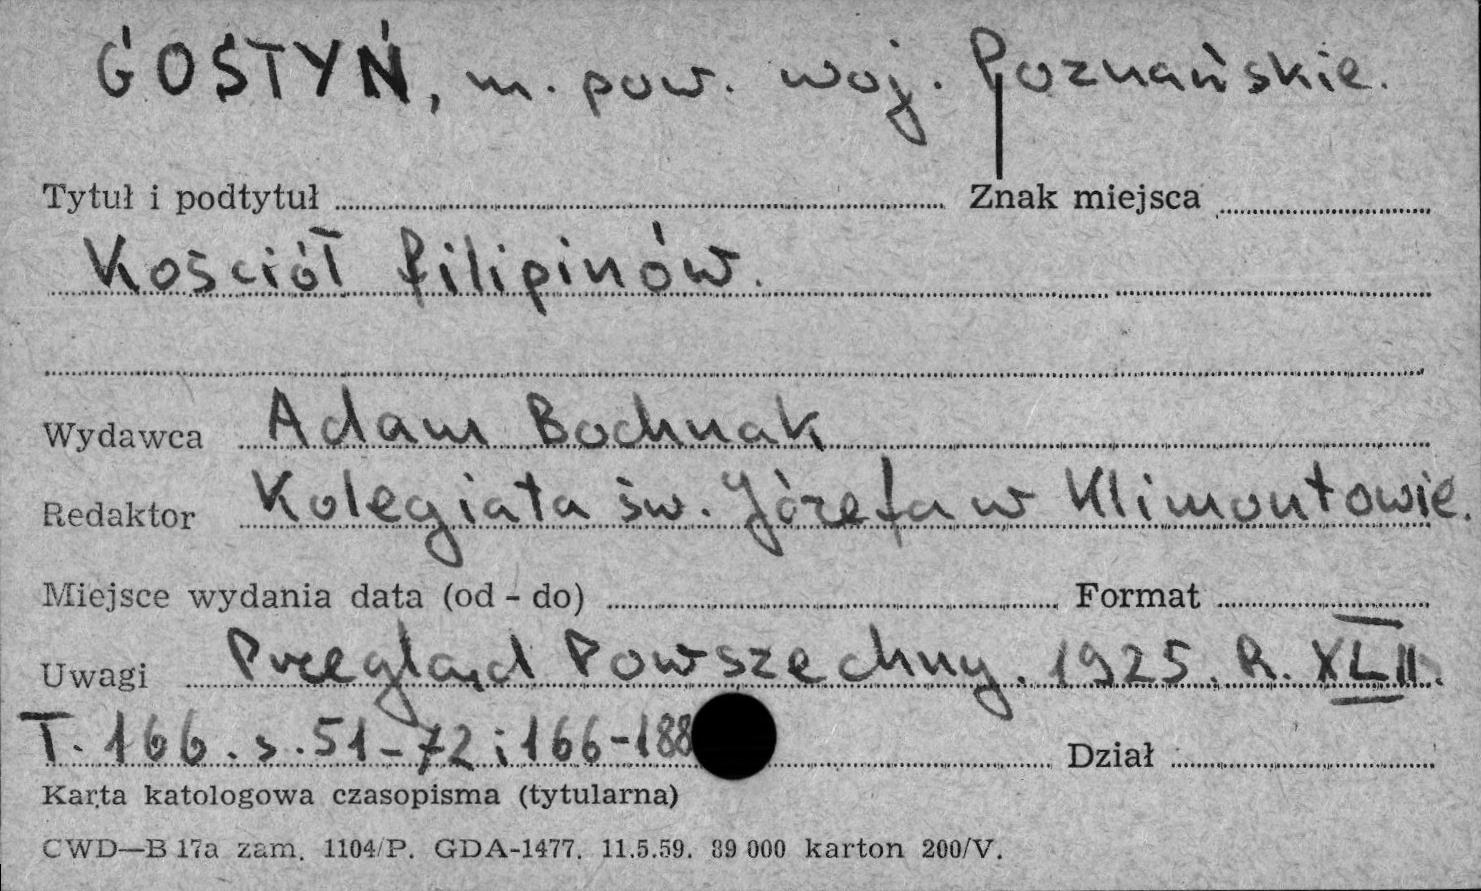 GOSTYŃ, m. pow. woj. Poznańskie.
Tytuł i podtytuł Znak miejsca
Kościół filipinów.
Wydawca Adam Bochnak
Redaktor Kolegiata św. Józefa w Klimontowie.
Miejsce wydania data (od - do) Format
Uwagi Przegląd Powszechny. 1925. R. XLII.
T. 166. s. 51-72 i 166-188
Dział
Karta katologowa czasopisma (tytularna)
CWD—B 17a zam. 1104/P. GDA-1477. 11.5.59. 89 000 karton 200/V.